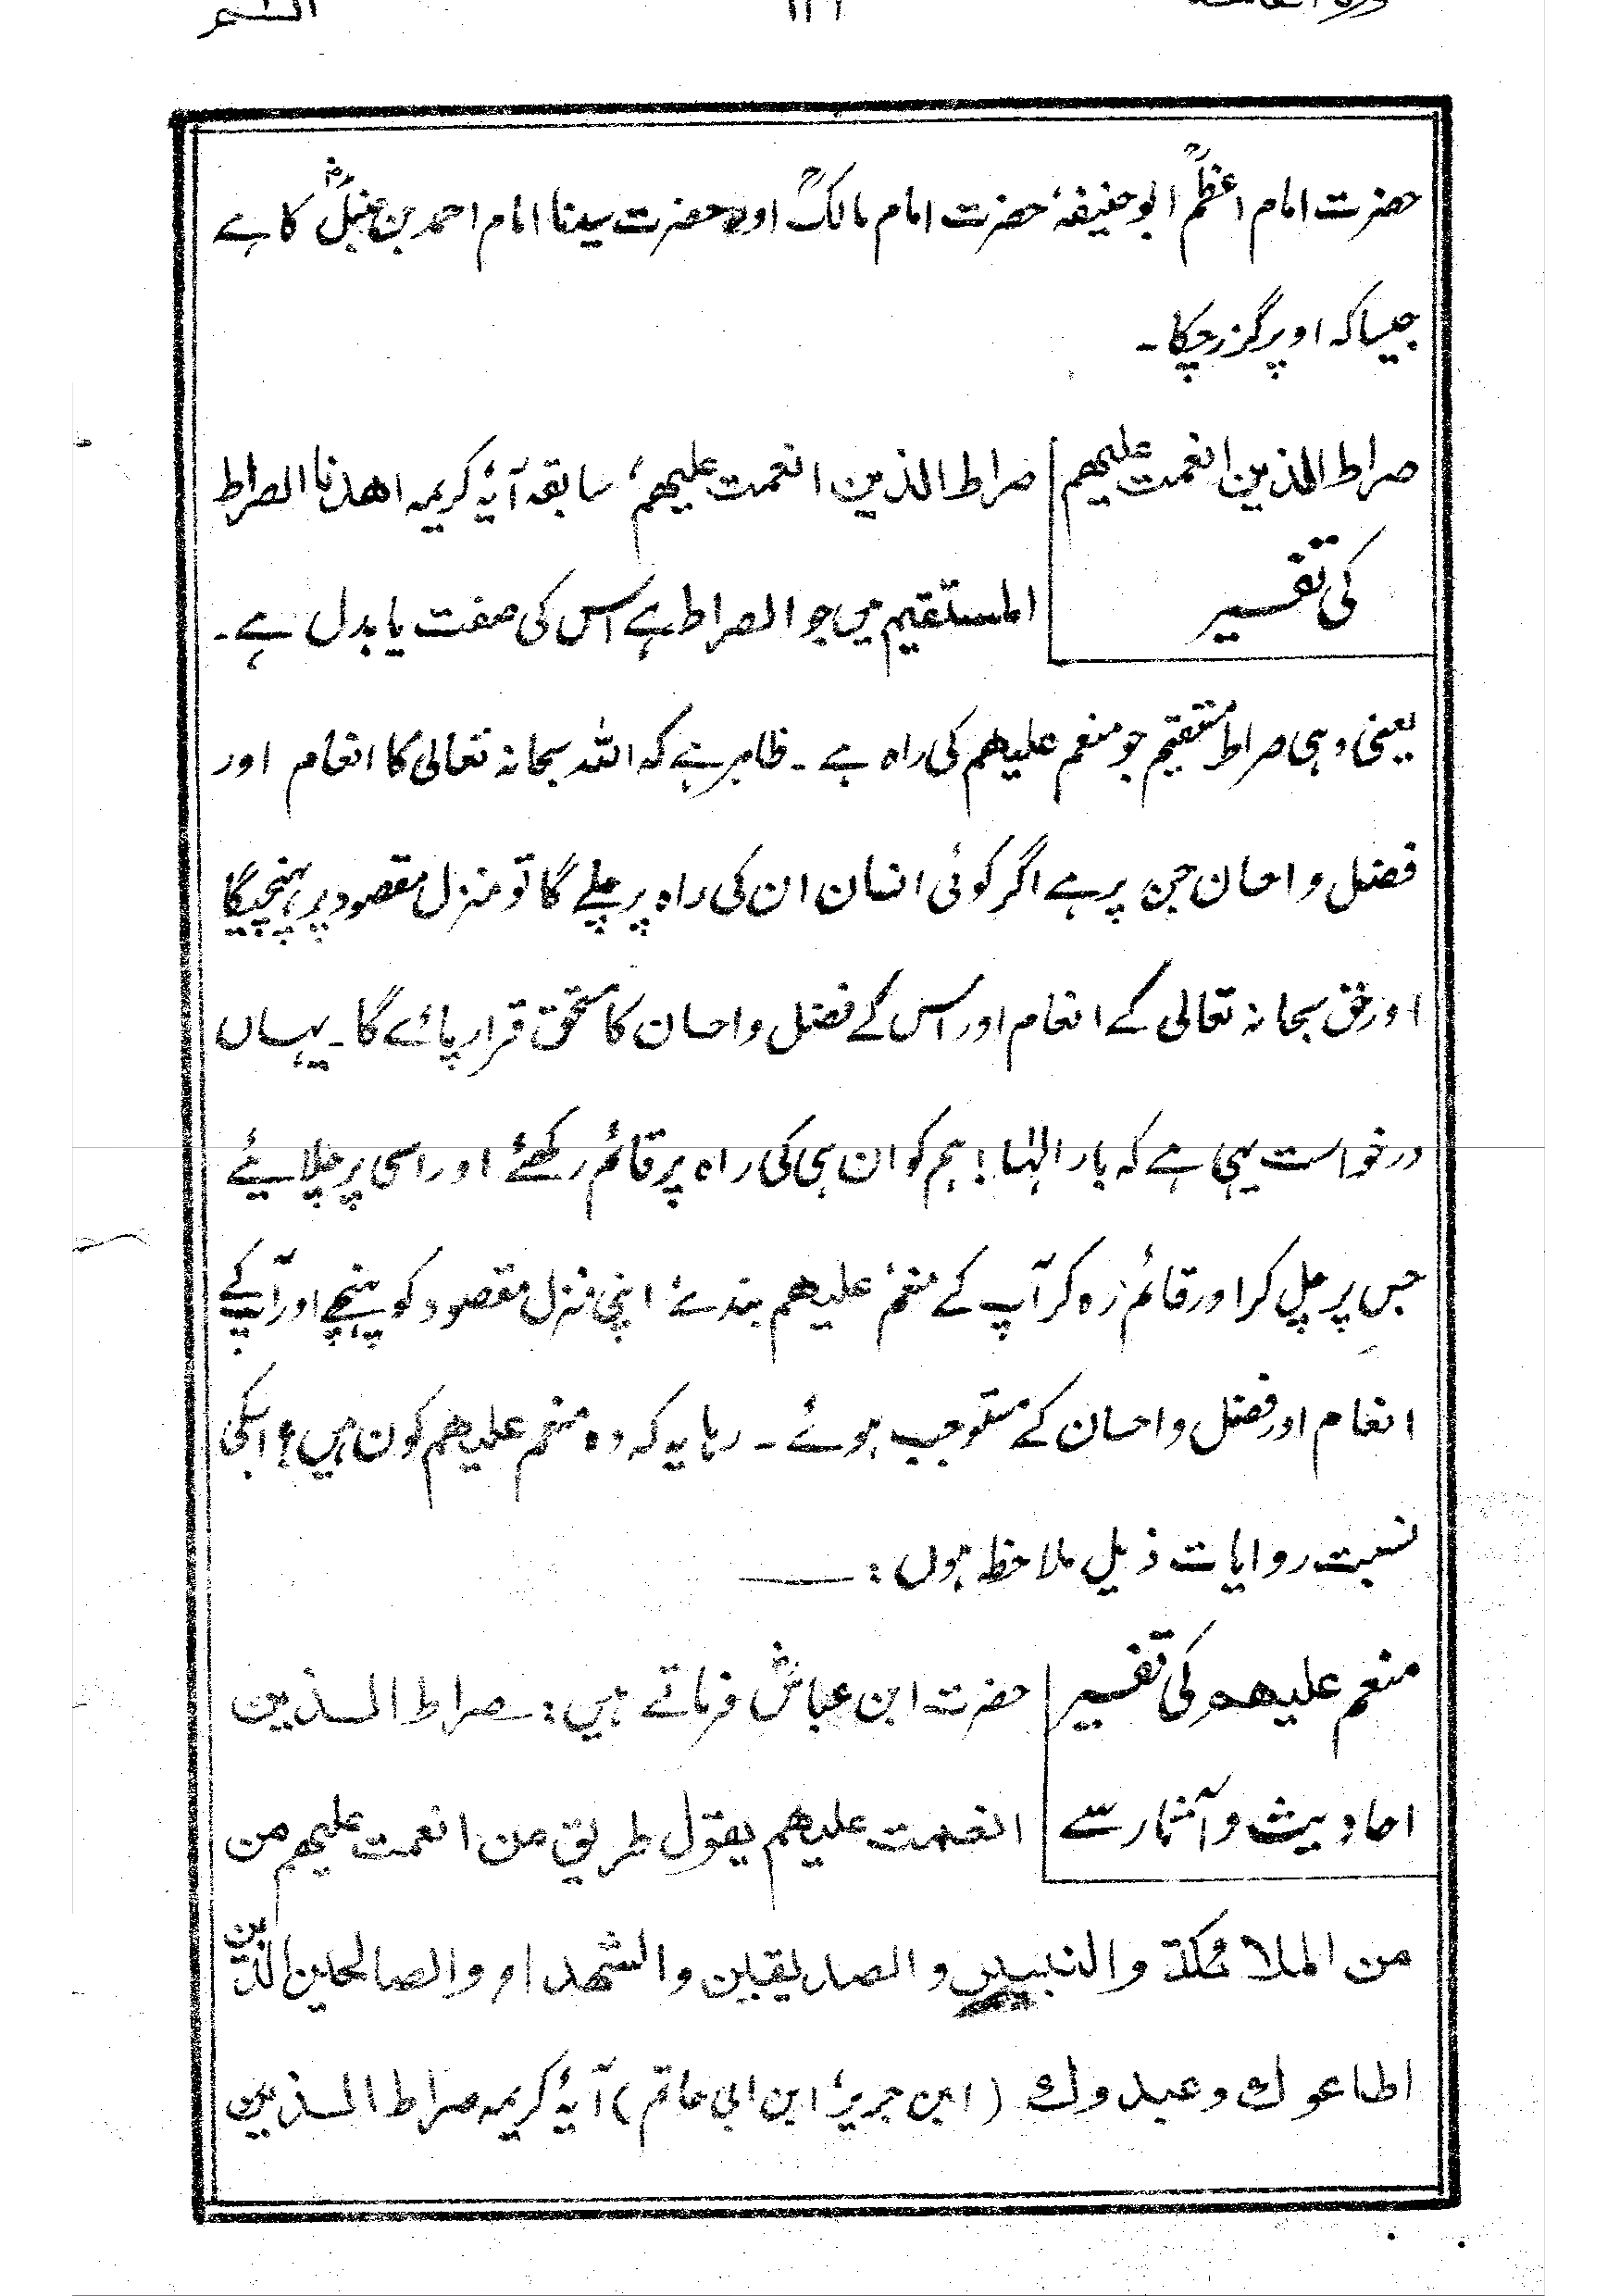 حضرت امام اعظمؒ ابو حنیفہ، حضرت امام مالکؒ اور حضرت سیدنا امام احمد بن حنبلؒ کا ہے
جیسا کہ اوپر گزر چکا۔
صراط الذین انعمت علیہم
کی تفسیر
صراط الذین انعمت علیھم، سابقہ آیۂ کریمہ اھدنا الصراط
المستقیم میں جو الصراط ہے اس کی صفت یا بدل ہے۔
یعنی وہی صراط مستقیم جو منعم علیھم کی راہ ہے۔ ظاہر ہے کہ اللہ سبحانہ تعالی کا انعام اور
فضل و احسان جن پر ہے اگر کوئی انسان ان کی راہ پر چلے گا تو منزل مقصود پر پہنچیگا
اور حق سبحانہ تعالی کے انعام اور اس کے فضل و احسان کا مستحق قرار پائے گا۔ یہاں
درخواست یہی ہے کہ بار الٰہا! ہم کو ان ہی کی راہ پر قائم رکھئے اور اسی پر چلائیے
جس پر چل کر اور قائم رہ کر آپ کے منعم علیھم بندے اپنی منزل مقصود کو پہنچے اور آپ کے
انعام اور فضل و احسان کے مستوجب ہوئے۔ رہا یہ کہ وہ منعم علیھم کون ہیں؟ اسکی
نسبت روایات ذیل ملاحظہ ہوں:
منعم علیھم کی تفسیر
احادیث و آثار سے
حضرت ابن عباسؓ فرماتے ہیں: صراط الذین
انعمت علیھم یقول طریق من انعمت علیھم من
من الملائکة والنبیین والصدیقین والشھداء والصالحین الذین
اطاعوك وعبدوك (ابن جریر، ابن ابی حاتم) آیۂ کریمہ صراط الذین